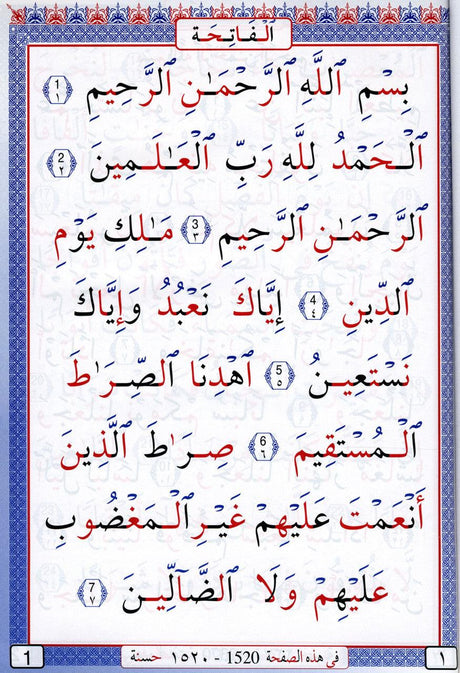 الْفَاتِحَة
بِسْمِ ٱللَّهِ ٱلرَّحْمَـٰنِ ٱلرَّحِيمِ 1 ١
ٱلْحَمْدُ لِلَّهِ رَبِّ ٱلْعَـٰلَمِينَ 2 ٢
ٱلرَّحْمَـٰنِ ٱلرَّحِيمِ 3 ٣ مَـٰلِكِ يَوْمِ
ٱلدِّينِ 4 ٤ إِيَّاكَ نَعْبُدُ وَإِيَّاكَ
نَسْتَعِينُ 5 ٥ ٱهْدِنَا ٱلصِّرَٰطَ
ٱلْمُسْتَقِيمَ 6 ٦ صِرَٰطَ ٱلَّذِينَ
أَنْعَمْتَ عَلَيْهِمْ غَيْرِ ٱلْمَغْضُوبِ
عَلَيْهِمْ وَلَا ٱلضَّآلِّينَ 7 ٧
١ في هذه الصفحة 1520 - ١٥٢٠ حسنة 1